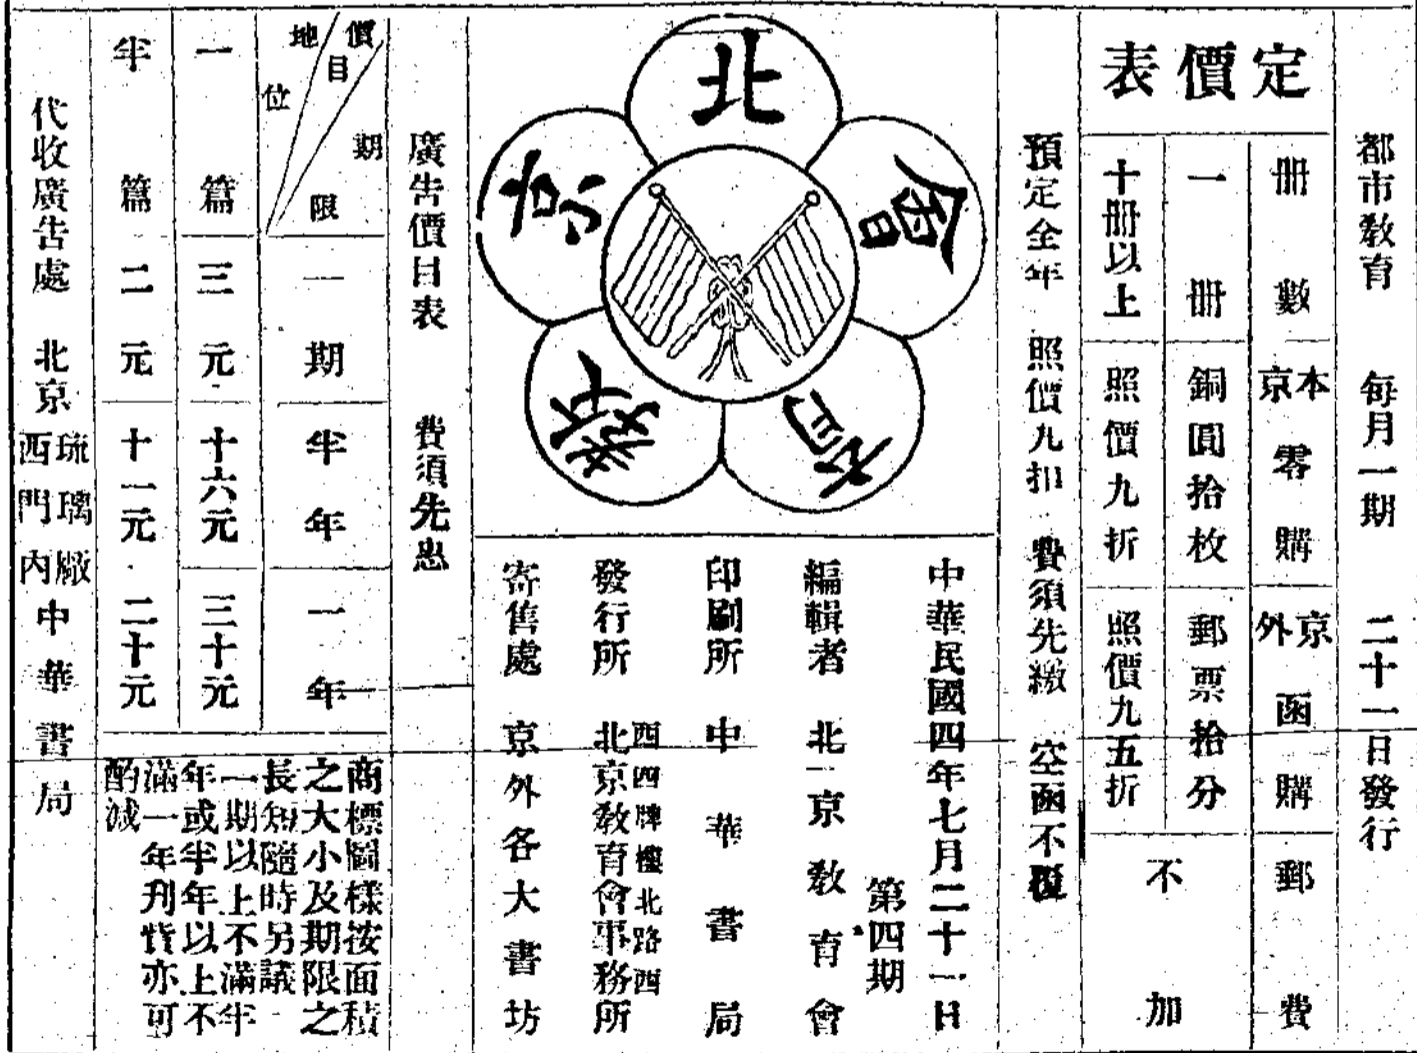 都市教育 每月一期 二十一日發行
定價表
册數 本京零購 京外函購 郵費
一册 銅圓拾枚 郵票拾分 不加
十册以上 照價九折 照價九五折
預定全年 照價九扣 費須先繳 空函不覆
北京教育會
中華民國四年七月二十一日
第四期
編輯者 北京教育會
印刷所 中華書局
西四牌樓北路西
發行所 北京教育會事務所
寄售處 京外各大書坊
廣告價目表 費須先惠
價目 期限 地位 一期 半年 一年
一篇 三元 十六元 三十元
半篇 二元 十一元 二十元
商標圖樣按面積
之大小及期限之
長短隨時另議
一期以上不滿半
年或半年以上不
滿一年刋貲亦可
酌減
代收廣告處 北京琉璃廠西門內中華書局